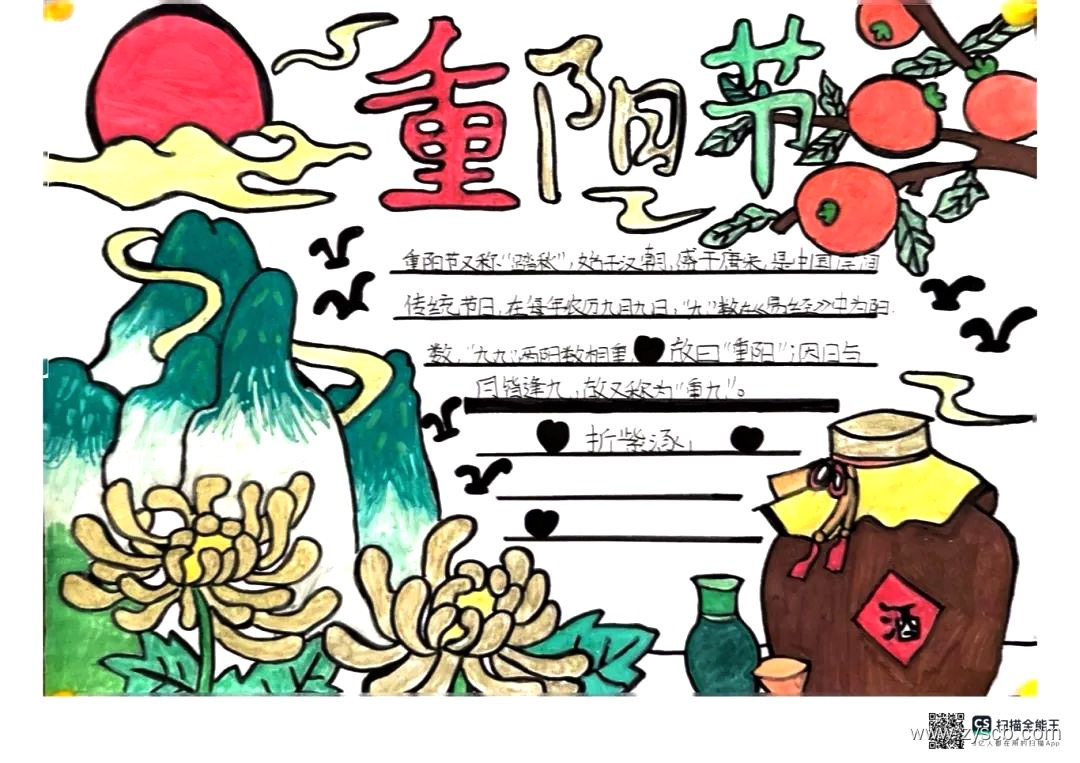 重阳节
重阳节又称"踏秋",始于汉朝,盛于唐宋,是中国
传统节日,在每年农历九月九日,"九"数在《易经》中为阳
数,"九九"两阳数相重, 故曰"重阳";因日与
月皆逢九,故又称为"重九"。
酒
CS 扫描全能王
3亿人都在用的扫描App
www.zysco.com